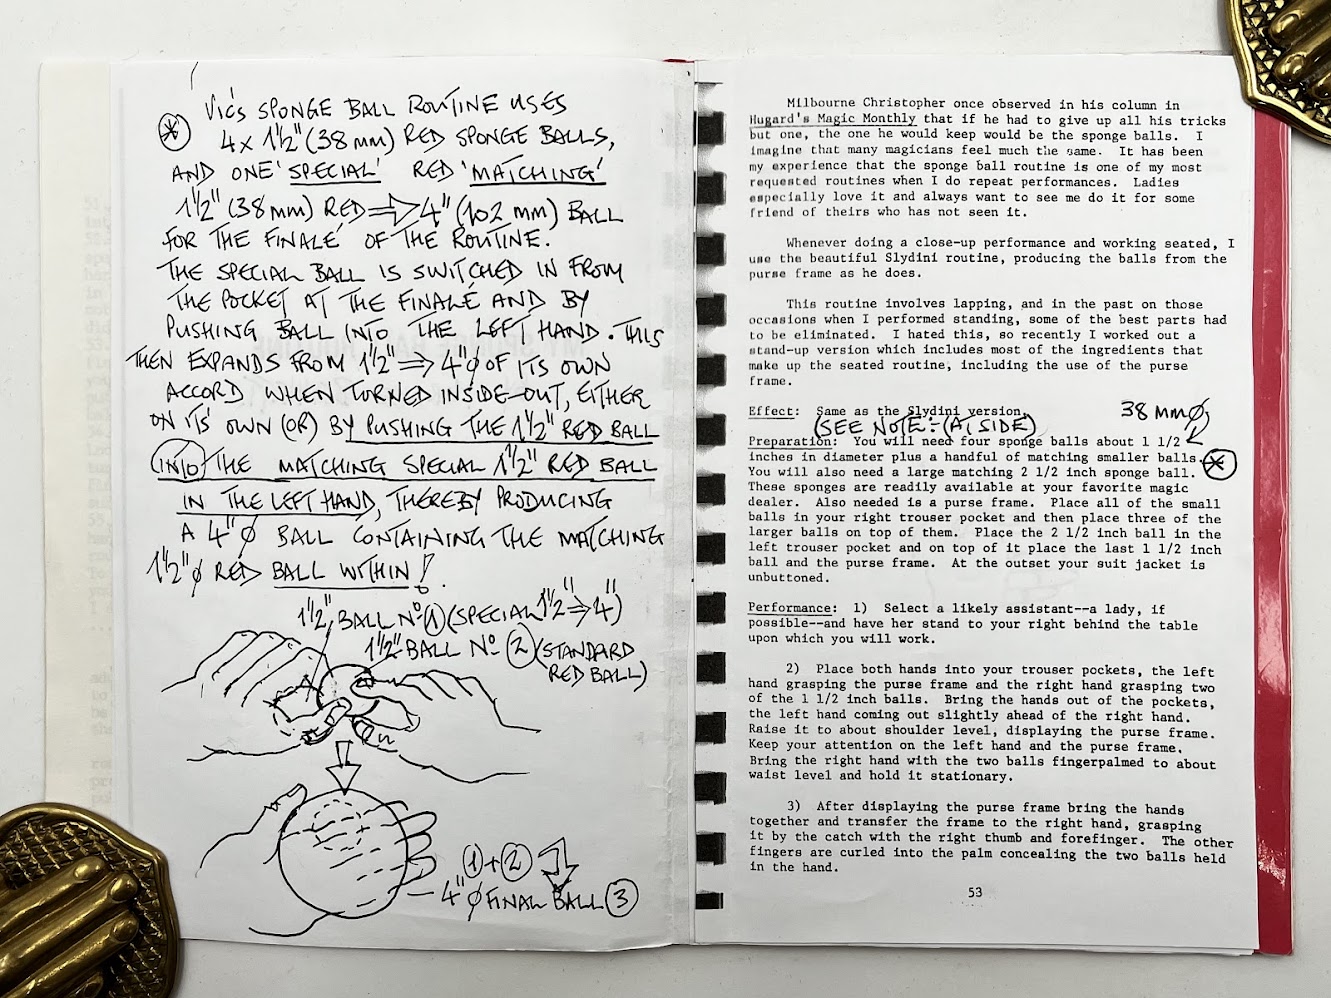 VIC'S SPONGE BALL ROUTINE USES
* 4 x 1½" (38 MM) RED SPONGE BALLS,
AND ONE 'SPECIAL' RED 'MATCHING'
1½" (38 MM) RED ⇒ 4" (102 MM) BALL
FOR THE FINALÉ OF THE ROUTINE.
THE SPECIAL BALL IS SWITCHED IN FROM
THE POCKET AT THE FINALÉ AND BY
PUSHING BALL INTO THE LEFT HAND. THIS
THEN EXPANDS FROM 1½" ⇒ 4"ø OF ITS OWN
ACCORD WHEN TURNED INSIDE-OUT, EITHER
ON ITS' OWN (OR) BY PUSHING THE 1½" RED BALL
INTO THE MATCHING SPECIAL 1½" RED BALL
IN THE LEFT HAND, THEREBY PRODUCING
A 4"ø BALL CONTAINING THE MATCHING
1½"ø RED BALL WITHIN!
1½" BALL Nº 1 (SPECIAL 1½" ⇒ 4")
1½" BALL Nº 2 (STANDARD
RED BALL)
1 + 2
4"ø FINAL BALL 3
Milbourne Christopher once observed in his column in
Hugard's Magic Monthly that if he had to give up all his tricks
but one, the one he would keep would be the sponge balls. I
imagine that many magicians feel much the same. It has been
my experience that the sponge ball routine is one of my most
requested routines when I do repeat performances. Ladies
especially love it and always want to see me do it for some
friend of theirs who has not seen it.
Whenever doing a close-up performance and working seated, I
use the beautiful Slydini routine, producing the balls from the
purse frame as he does.
This routine involves lapping, and in the past on those
occasions when I performed standing, some of the best parts had
to be eliminated. I hated this, so recently I worked out a
stand-up version which includes most of the ingredients that
make up the seated routine, including the use of the purse
frame.
Effect: Same as the Slydini version. 38 MMø
(SEE NOTE:- (A, SIDE)
Preparation: You will need four sponge balls about 1 1/2
inches in diameter plus a handful of matching smaller balls. *
You will also need a large matching 2 1/2 inch sponge ball.
These sponges are readily available at your favorite magic
dealer. Also needed is a purse frame. Place all of the small
balls in your right trouser pocket and then place three of the
larger balls on top of them. Place the 2 1/2 inch ball in the
left trouser pocket and on top of it place the last 1 1/2 inch
ball and the purse frame. At the outset your suit jacket is
unbuttoned.
Performance: 1) Select a likely assistant--a lady, if
possible--and have her stand to your right behind the table
upon which you will work.
2) Place both hands into your trouser pockets, the left
hand grasping the purse frame and the right hand grasping two
of the 1 1/2 inch balls. Bring the hands out of the pockets,
the left hand coming out slightly ahead of the right hand.
Raise it to about shoulder level, displaying the purse frame.
Keep your attention on the left hand and the purse frame.
Bring the right hand with the two balls fingerpalmed to about
waist level and hold it stationary.
3) After displaying the purse frame bring the hands
together and transfer the frame to the right hand, grasping
it by the catch with the right thumb and forefinger. The other
fingers are curled into the palm concealing the two balls held
in the hand.
53